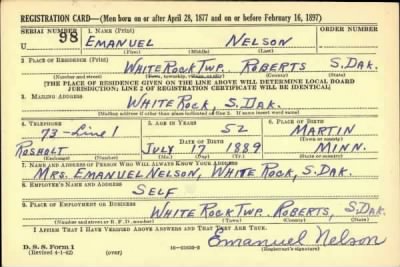 REGISTRATION CARD—(Men born on or after April 28, 1877 and on or before February 16, 1897)
SERIAL NUMBER 1. NAME (Print) ORDER NUMBER
U 98 EMANUEL NELSON
(First) (Middle) (Last)
2. PLACE OF RESIDENCE (Print)
WHITE ROCK TWP. ROBERTS S. DAK.
(Number and street) (Town, township, village, or city) (County) (State)
[THE PLACE OF RESIDENCE GIVEN ON THE LINE ABOVE WILL DETERMINE LOCAL BOARD
JURISDICTION; LINE 2 OF REGISTRATION CERTIFICATE WILL BE IDENTICAL]
3. MAILING ADDRESS
WHITE ROCK, S. DAK.
[Mailing address if other than place indicated on line 2. If same insert word same]
4. TELEPHONE 5. AGE IN YEARS 6. PLACE OF BIRTH
73-Line 1 52 MARTIN
DATE OF BIRTH (Town or county)
ROSHOLT JULY 17 1889 MINN.
(Exchange) (Number) (Mo.) (Day) (Yr.) (State or country)
7. NAME AND ADDRESS OF PERSON WHO WILL ALWAYS KNOW YOUR ADDRESS
MRS. EMANUEL NELSON, WHITE ROCK, S. DAK.
8. EMPLOYER'S NAME AND ADDRESS
SELF
9. PLACE OF EMPLOYMENT OR BUSINESS
WHITE ROCK TWP. ROBERTS, S. DAK.
(Number and street or R. F. D. number) (Town) (County) (State)
I AFFIRM THAT I HAVE VERIFIED ABOVE ANSWERS AND THAT THEY ARE TRUE.
D. S. S. Form 1
(Revised 4-1-42) (over) Emanuel Nelson
(Registrant's signature)